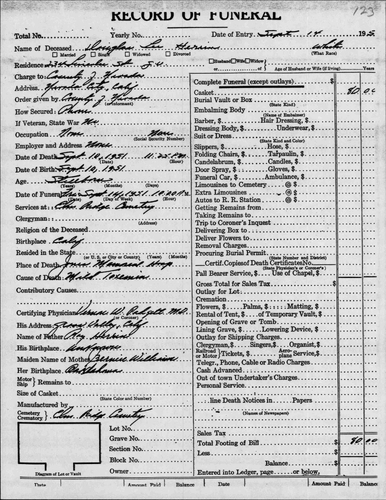 RECORD OF FUNERAL
123
Total No. Yearly No. Date of Entry Sept. 14 19
Name of Deceased Douglas Lee Herrin White
Married Single Widowed Divorced (What Race)
Residence
Husband Wife of
Age of Husband or Wife (if living)
Charge to County of Nevada
Address Nevada City, Calif
Order given by County of Nevada
How Secured Phone
If Veteran, State War No
Occupation None
Employer and Address None
Date of Death Sept. 12, 1951 11:25 PM
Date of Birth Sept. 12, 1951
Age Stillborn
(Years) (Months) (Days)
Date of Funeral Sept. 14, 1951
(Date) (Hour)
Services at Elm Ridge Cemetery
Clergyman
(Address)
Religion of the Deceased
Birthplace Calif
Resided in the State
(or U. S., or City or County) (Years) (Months)
Place of Death Jones Memorial Hosp.
Cause of Death
Contributory Causes
Certifying Physician Vernon W. Padgett M.D.
(or Coroner)
His Address Grass Valley, Calif
Name of Father Roy Herrin
His Birthplace Unknown
Maiden Name of Mother Bernice Williams
Her Birthplace Oklahoma
Motor Ship Remains to
Size of Casket
(State Color and Number)
Manufactured by
Cemetery Crematory Elm Ridge Cemetery
Lot No.
Grave No.
Section No.
Block No.
Owner
Diagram of Lot or Vault
Complete Funeral (except outlays)
Casket 80 00
Burial Vault or Box
(State Kind)
Embalming Body
(Name of Embalmer)
Barber, $ Hair Dressing, $
Dressing Body, $ Underwear, $
Suit or Dress
(State Kind)
Slippers, $ Hose, $
Folding Chairs, $ Tarpaulin, $
Candelabrum, $ Candles, $
Door Spray, $ Gloves, $
Funeral Car, $ Ambulance, $
Limousines to Cemetery @ $
Extra Limousines @ $
Autos to R. R. Station @ $
Getting Remains from
Taking Remains to
Trip to Coroner's Inquest
Delivering Box to
Deliver Flowers to
Removal Charges
Procuring Burial Permit
(State Number and District)
Certif. Copies of Death Certificates No.
(State Physician's or Coroner's)
Pall Bearer Service, $ Use of Chapel, $
Gross Total for Sales Tax
Outlay for Lot
Cremation
Flowers, $ Palms, $ Matting, $
Rental of Tent, $ of Temporary Vault, $
Opening of Grave or Tomb
Lining Grave, $ Lowering Device, $
Outlay for Shipping Charges
Clergyman, $ Singers, $ Organist, $
Railroad or Motor Tickets, $ Aeroplane Service, $
Telegr., Phone, Cable or Radio Charges
Cash Advanced
Out of town Undertaker's Charges
Personal Service
line Death Notices in Papers
(Names of Newspapers)
Sales Tax
Total Footing of Bill 80 00
Less
Balance
Entered into Ledger, page or below,
Date Amount Paid Balance Date Amount Paid Balance